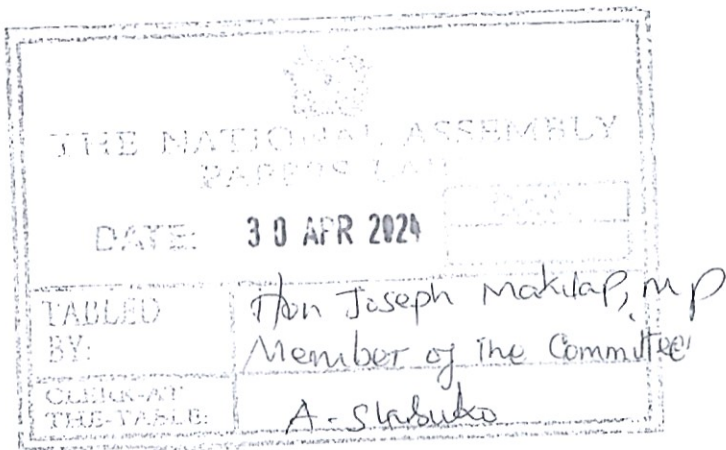 THE NATIONAL ASSEMBLY
PAPERS LAID
DATE: 30 APR 2024
TABLED BY: Hon Joseph Makilap, MP
Member of the Committee
CLERK-AT THE-TABLE: